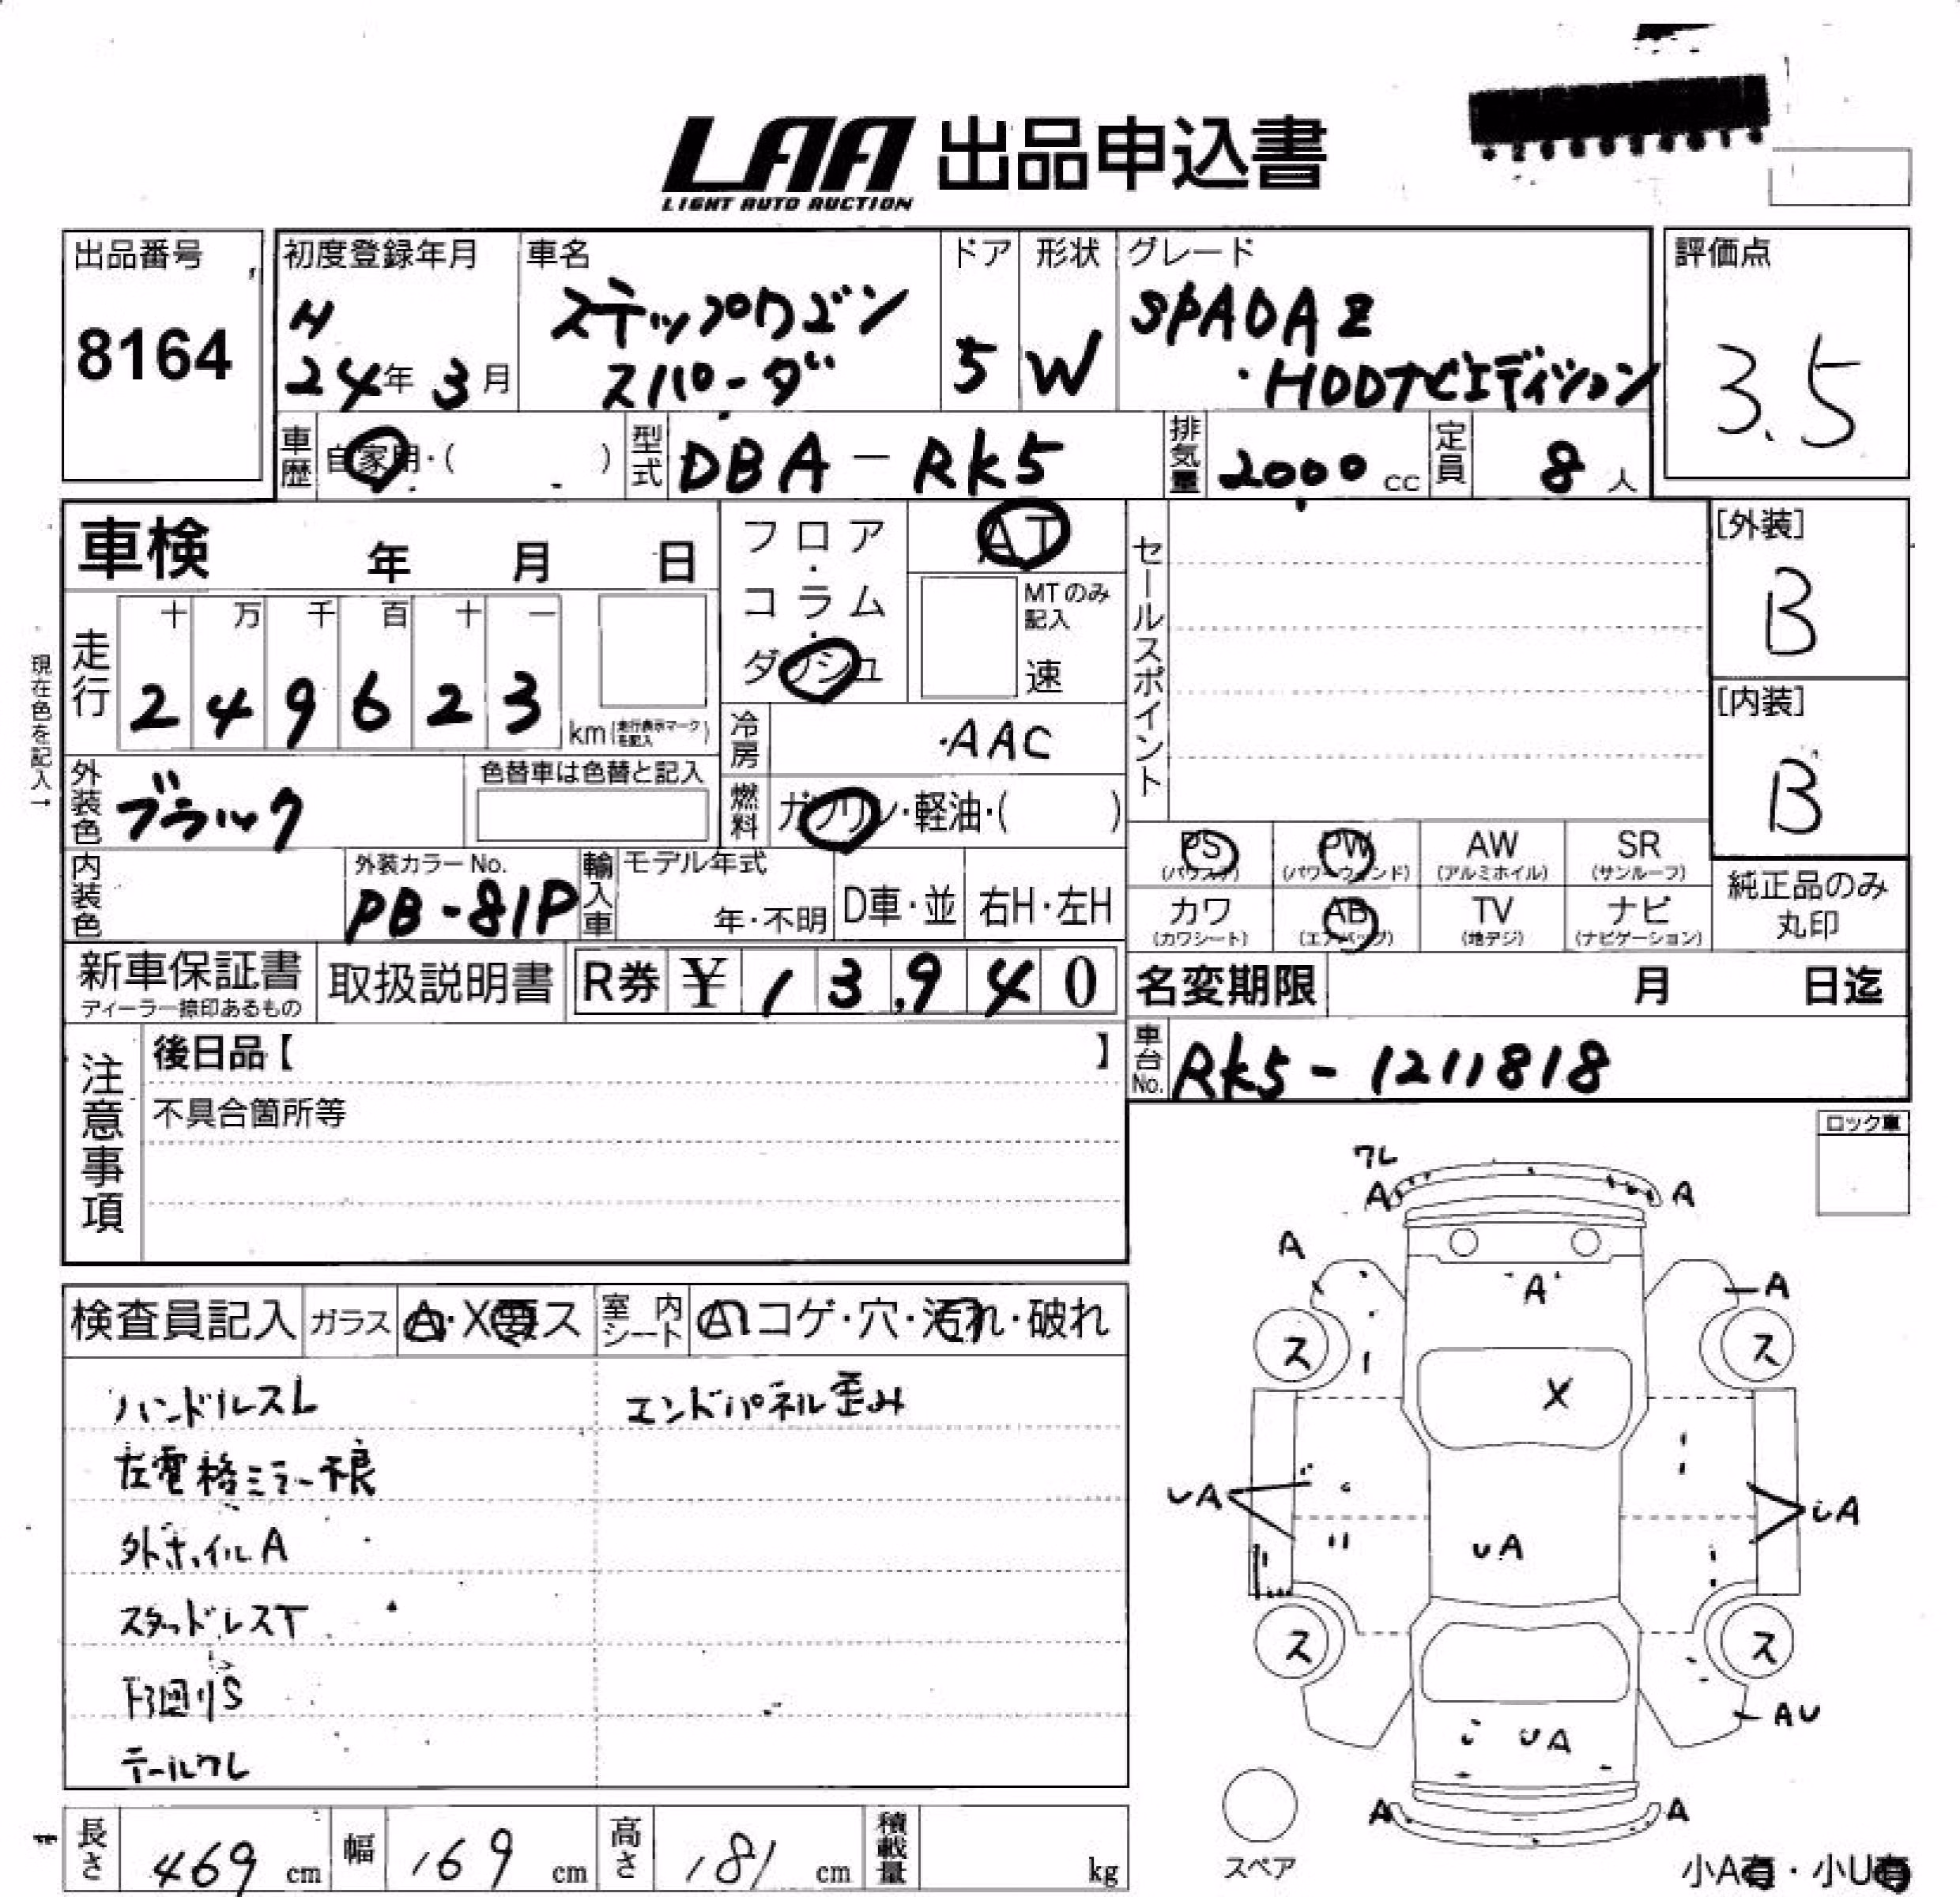 LAA 出品申込書
LIGHT AUTO AUCTION
出品番号
8164
初度登録年月
H
24年 3月
車名
ステップワゴン
スパーダ
ドア
5
形状
W
グレード
SPADA Z
・HDDナビエディション
評価点
3.5
車歴 自家用・( )
型式 DBA-RK5
排気量 2000 cc
定員 8 人
車検 年 月 日
フロア・コラム・ダッシュ
AT
MTのみ記入
速
セールスポイント
[外装]
B
[内装]
B
現在色を記入→
走行
十 万 千 百 十 一
2 4 9 6 2 3
km(走行表示マークを記入)
冷房 AAC
外装色 ブラック
色替車は色替と記入
燃料 ガソリン・軽油・( )
PS PW AW SR
(パワステ) (パワーウィンド) (アルミホイル) (サンルーフ)
カワ AB TV ナビ
(カワシート) (エアバッグ) (地デジ) (ナビゲーション)
純正品のみ
丸印
内装色
外装カラーNo.
PB-81P
輸入車
モデル年式
年・不明
D車・並
右H・左H
新車保証書
ディーラー捺印あるもの
取扱説明書
R券 ¥ 13,940
名変期限 月 日迄
車台No. RK5-1211818
注意事項
後日品【 】
不具合箇所等
ロック車
検査員記入
ガラス A・X要ス
室内シート
コゲ・穴・汚れ・破れ
ハンドルスレ
エンドパネル歪み
左電格ミラー不良
外ホイルA
スタッドレスT
下回りS
テールワレ
ワレ
A A
A
A
A
ス ス
X
UA
UA
UA
ス ス
AU
UA
A A
スペア
長さ 469 cm
幅 169 cm
高さ 181 cm
積載量 kg
小A有・小U有